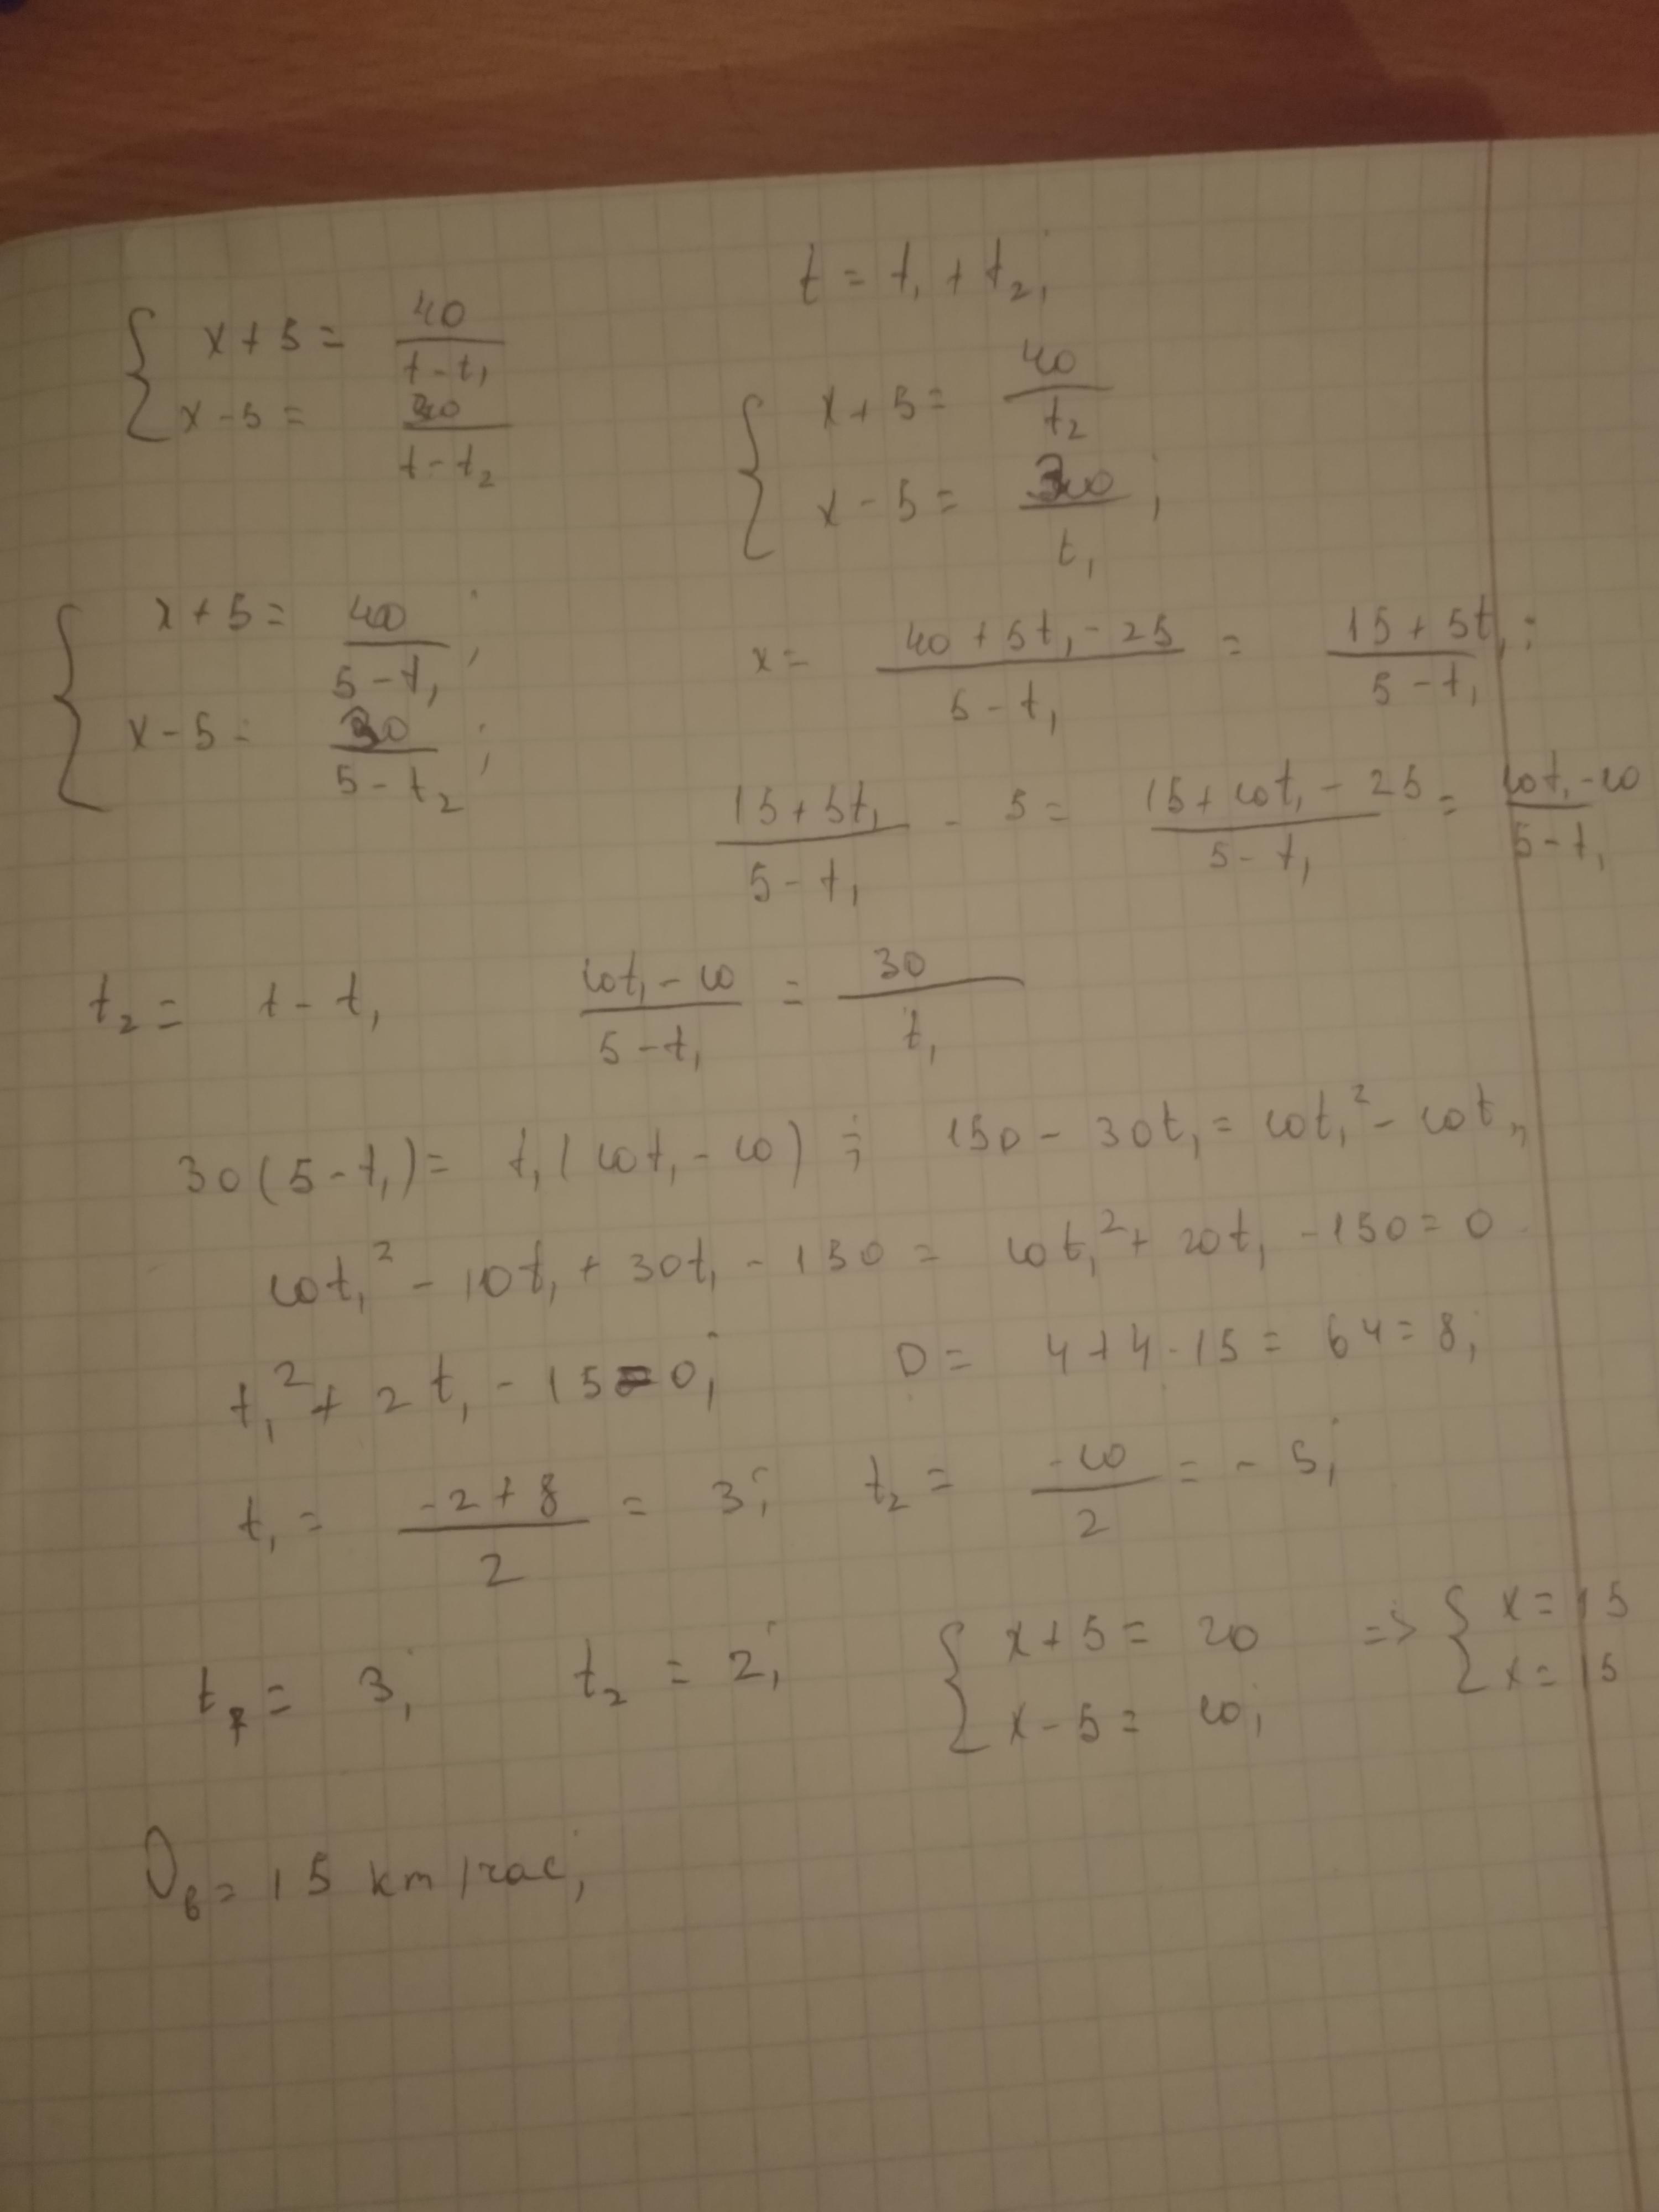 t = t₁ + t₂;
{ x + 5 = 40/(t - t₁)
x - 5 = 30/(t - t₂)
{ x + 5 = 40/t₂
x - 5 = 30/t₁ ;
{ x + 5 = 40/(5 - t₁) ;
x - 5 = 30/(5 - t₂) ;
x = (40 + 5t₁ - 25)/(5 - t₁) = (15 + 5t₁)/(5 - t₁) ;
(15 + 5t₁)/(5 - t₁) - 5 = (15 + 10t₁ - 25)/(5 - t₁) = (10t₁ - 10)/(5 - t₁)
t₂ = t - t₁ (10t₁ - 10)/(5 - t₁) = 30/t₁
30(5 - t₁) = t₁(10t₁ - 10) ; 150 - 30t₁ = 10t₁² - 10t₁,
10t₁² - 10t₁ + 30t₁ - 150 = 10t₁² + 20t₁ - 150 = 0
t₁² + 2t₁ - 15 = 0; D = 4 + 4·15 = 64 = 8;
t₁ = (-2 + 8)/2 = 3; t₂ = -10/2 = -5;
t₁ = 3; t₂ = 2; { x + 5 = 20 => { x = 15
x - 5 = 10; x = 15
υв = 15 km/час;